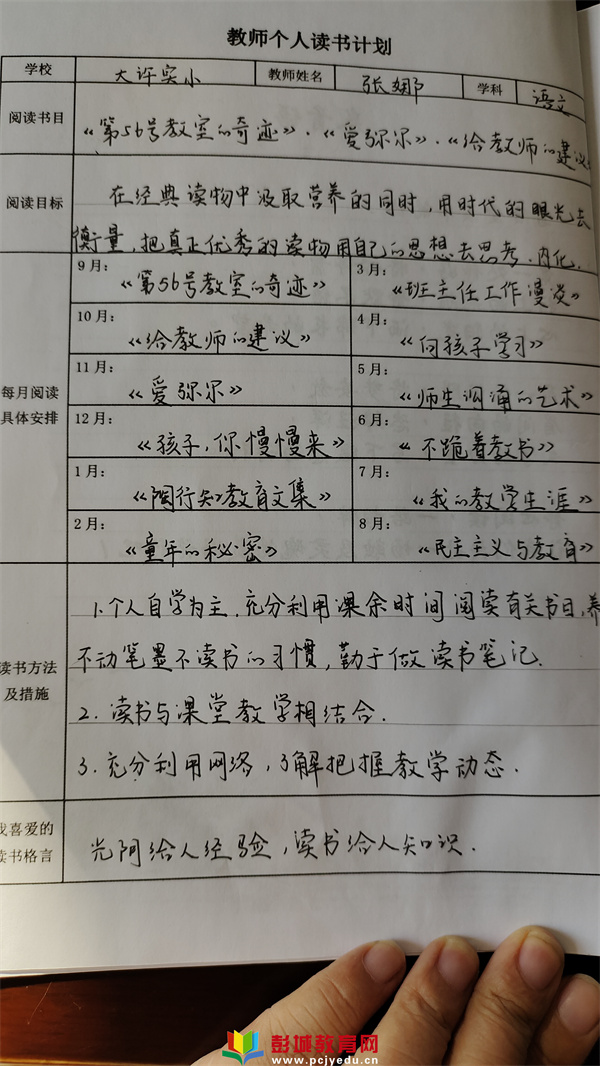 教师个人读书计划
学校 大许实小 教师姓名 张娜 学科 语文
阅读书目 《第56号教室的奇迹》、《爱弥尔》、《给教师的建议》
阅读目标 在经典读物中汲取营养的同时,用时代的眼光去
衡量,把真正优秀的读物用自己的思想去思考、内化.
每月阅读
具体安排
9月: 《第56号教室的奇迹》 3月: 《班主任工作漫谈》
10月: 《给教师的建议》 4月: 《向孩子学习》
11月: 《爱弥尔》 5月: 《师生沟通的艺术》
12月: 《孩子,你慢慢来》 6月: 《不跪着教书》
1月: 《陶行知教育文集》 7月: 《我的教学生涯》
2月: 《童年的秘密》 8月: 《民主主义与教育》
读书方法
及措施
1.个人自学为主.充分利用课余时间阅读有关书目,养
不动笔墨不读书的习惯,勤于做读书笔记.
2.读书与课堂教学相结合.
3.充分利用网络,了解把握教学动态.
我喜爱的
读书格言
光阴给人经验,读书给人知识.
彭城教育网
www.pcjyedu.cn